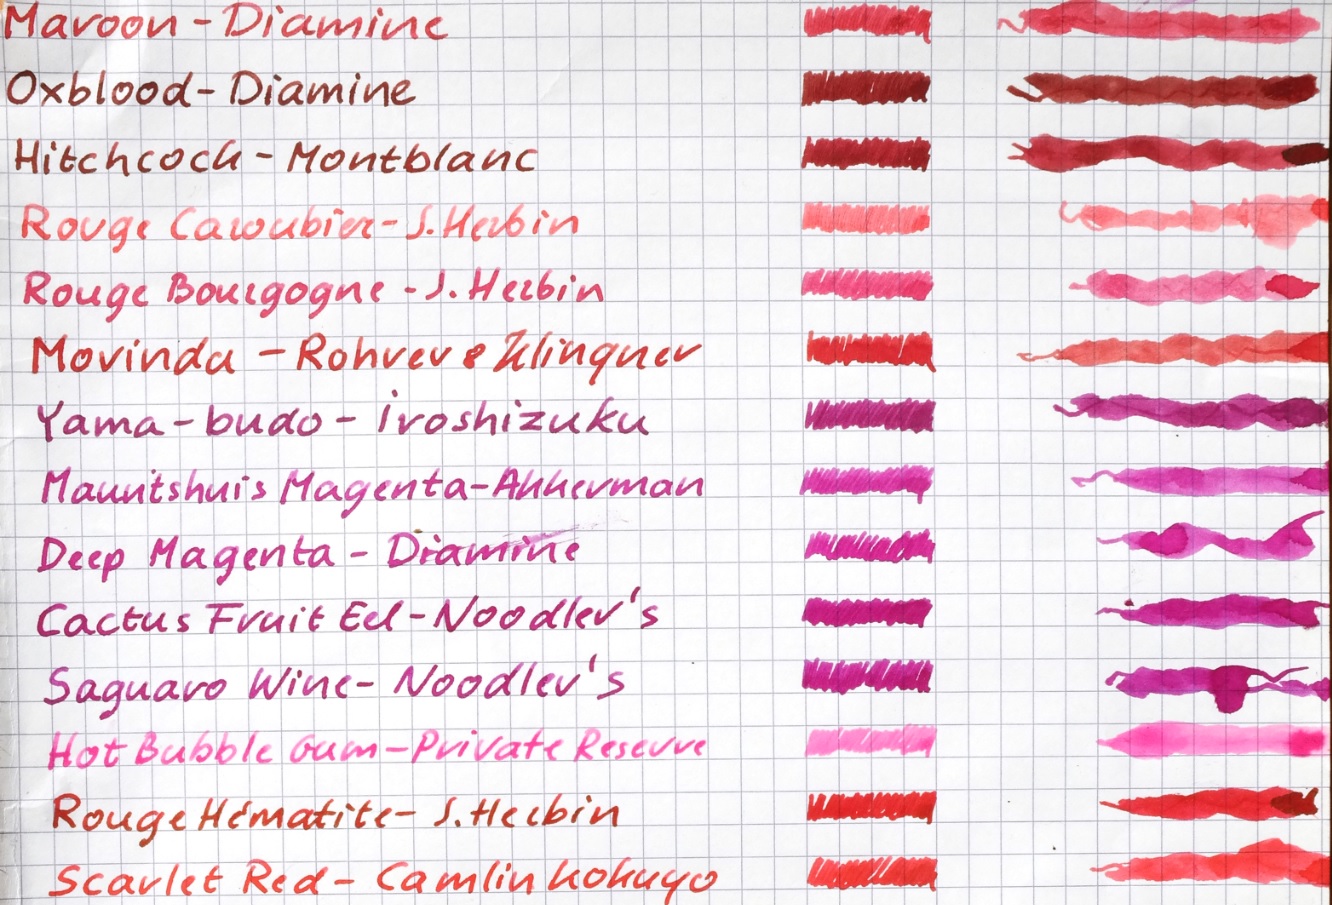 Maroon - Diamine
Oxblood - Diamine
Hitchcock - Montblanc
Rouge Caroubier - J. Herbin
Rouge Bourgogne - J. Herbin
Morinda - Rohrer & Klingner
Yama-budo - iroshizuku
Mauritshuis Magenta - Akkerman
Deep Magenta - Diamine
Cactus Fruit Eel - Noodler's
Saguaro Wine - Noodler's
Hot Bubble Gum - Private Reserve
Rouge Hématite - J. Herbin
Scarlet Red - Camlin kokuyo